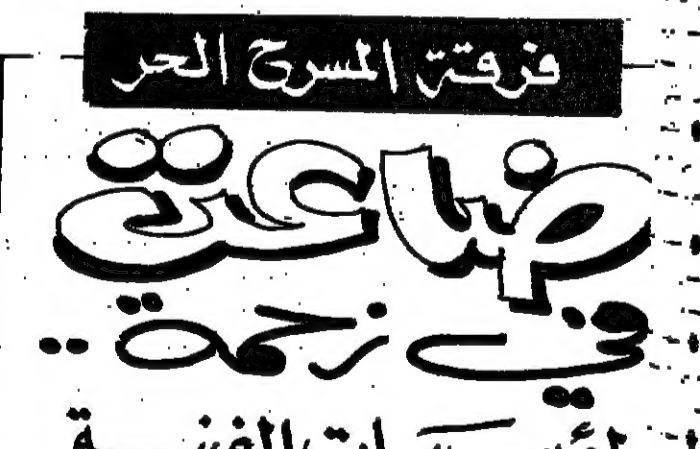 فرقة المسرح الحر
ضاعت
في زحمة ..